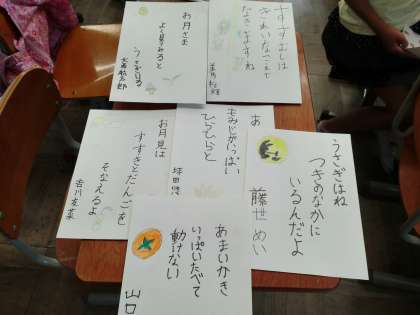 お月さま
よく見てみると
うさぎいる
すずむしは
きれいなこえで
あ
もみじがいっぱい
ひらひらと
坪田
お月見は
すすきとだんごを
そなえるよ
吉川友菜
うさぎはね
つきのなかに
いるんだよ
藤世めい
あまいかき
いっぱいたべて
動けない
山口